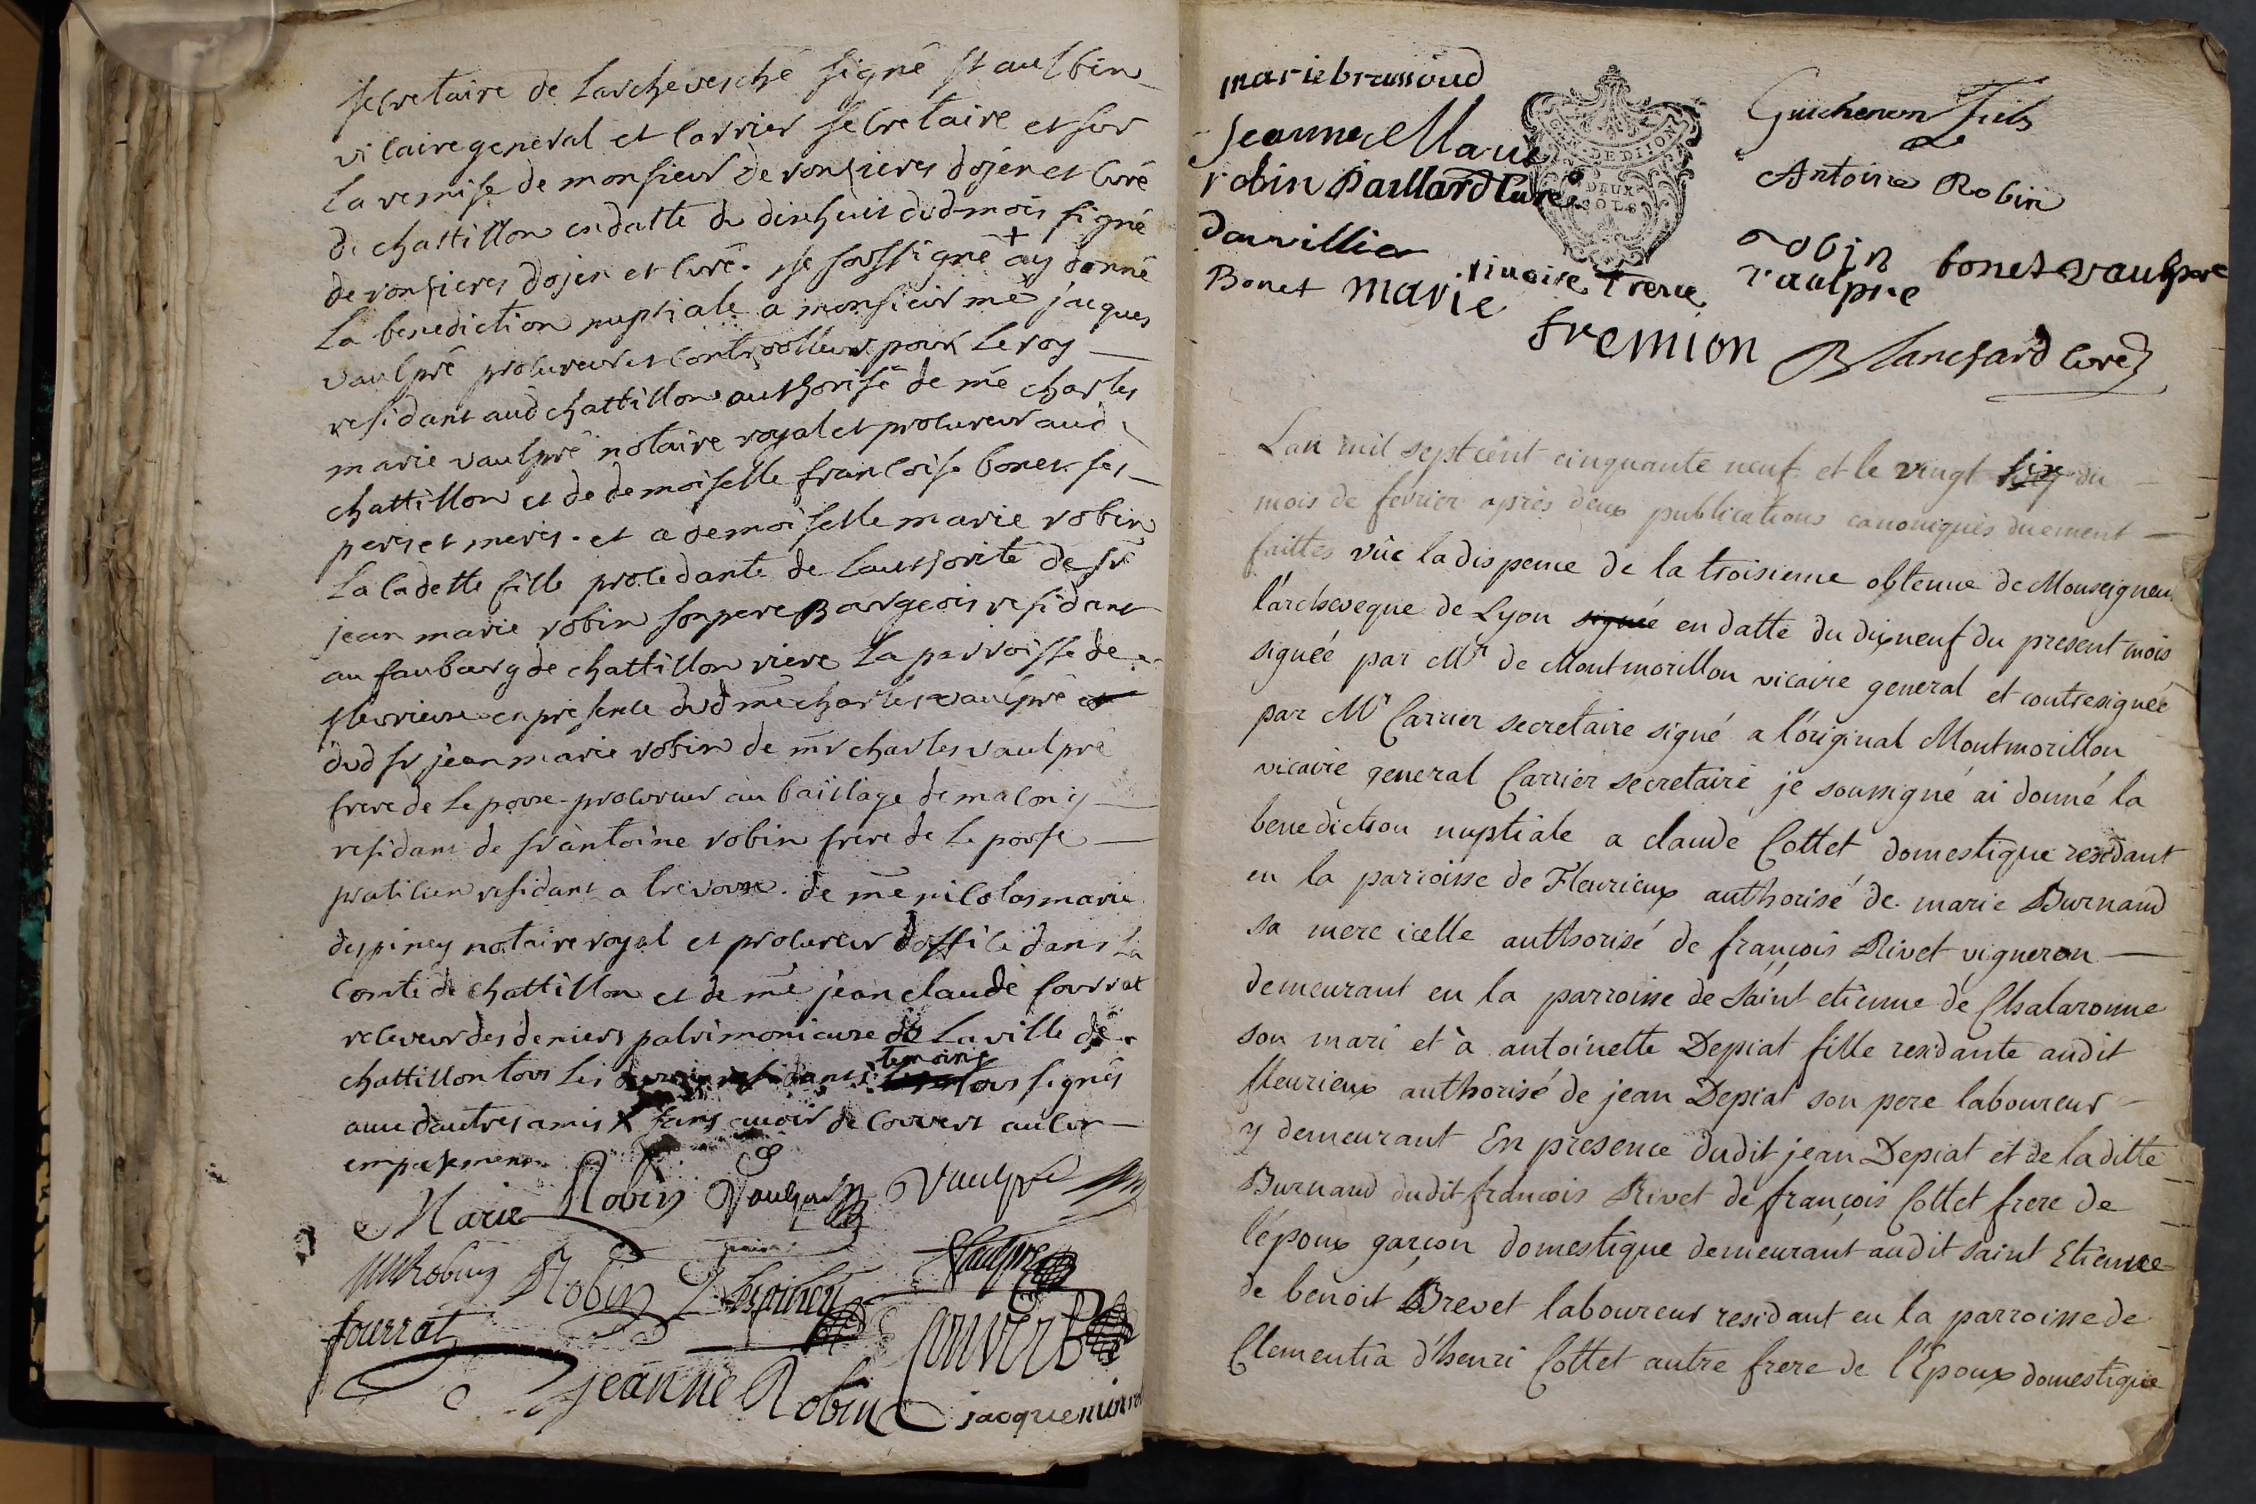 secretaire de Larchevesché signé st aulbin
vicaire general et Carrier secretaire et sur
La remise de monsieur de ronsieres dojen et curé
de chattillon en datte du dixhuit dud mois signé
de ronsieres dojen et curé. je soussigné + ay donné
La benediction nuptiale a monsieur me jacques
vaulpré procureur et controolleur pour Le roy
residant aud chattillon authorisé de me charles
marie vaulpré notaire royal et procureur aud
chattillon et de demoiselle francoise bonet ses
peres et meres. et a demoiselle marie robin
La Cadette fille procedante de Lauthorité de sr
jean marie robin son pere Bourgeois residant
au faubourg de chattillon riere La parroisse de
fleurieux en presence dud me charles vaulpré et
dud sr jean marie robin de mr charles vaulpré
frere de Lepoux procureur au bailliage de macon y
residant de sr antoine robin frere de Lepouse
praticien residant a trevoux. de me nicolas marie
despiney notaire royal et procureur doffice dans La
Comté de chattillon et de me jean claude fourrat
receveur des deniers patrimoniaux de La ville de
chattillon tous Les temoins tous signés
avec dautres amis X sans avoir decouvert aucun
empechement
Marie Robin Vaulpré Vaulpré
Robin Robin Despiney Vaulpré
fourrat Convert
jeanne Robin jacque
marie brunoud
Jeanne Marie
robin Paillard Curé
Guichenon fils
Antoine Robin
Douvillier
robin
Bonet marie vaulpré bonet vaulpré
fremion Blanchard Curé
Lan mil sept cent cinquante neuf et le vingt six du
mois de fevrier après deux publications canoniques duement
faittes vûe la dispense de la troisieme obtenue de Monseigneur
l'archeveque de Lyon signé en datte du dixneuf du present mois
signée par Mr de Montmorillon vicaire general et contresignée
par Mr Carrier secretaire signé a l'original Montmorillon
vicaire general Carrier secretaire je soussigné ai donné la
benediction nuptiale a claude Cottet domestique residant
en la parroisse de Fleurieux authorisé de marie Burnand
sa mere icelle authorisé de françois Rivet vigneron
demeurant en la parroisse de Saint etienne de Chalaronne
son mari et à antoinette Depiat fille residante audit
fleurieux authorisé de jean Depiat son pere laboureur
y demeurant En presence dudit jean Depiat et de laditte
Burnand dudit francois Rivet de françois Cottet frere de
l'époux garçon domestique demeurant audit saint Etienne
de benoit Brevet laboureur residant en la parroisse de
Clementia d'henri Cottet autre frere de l'Epoux domestique